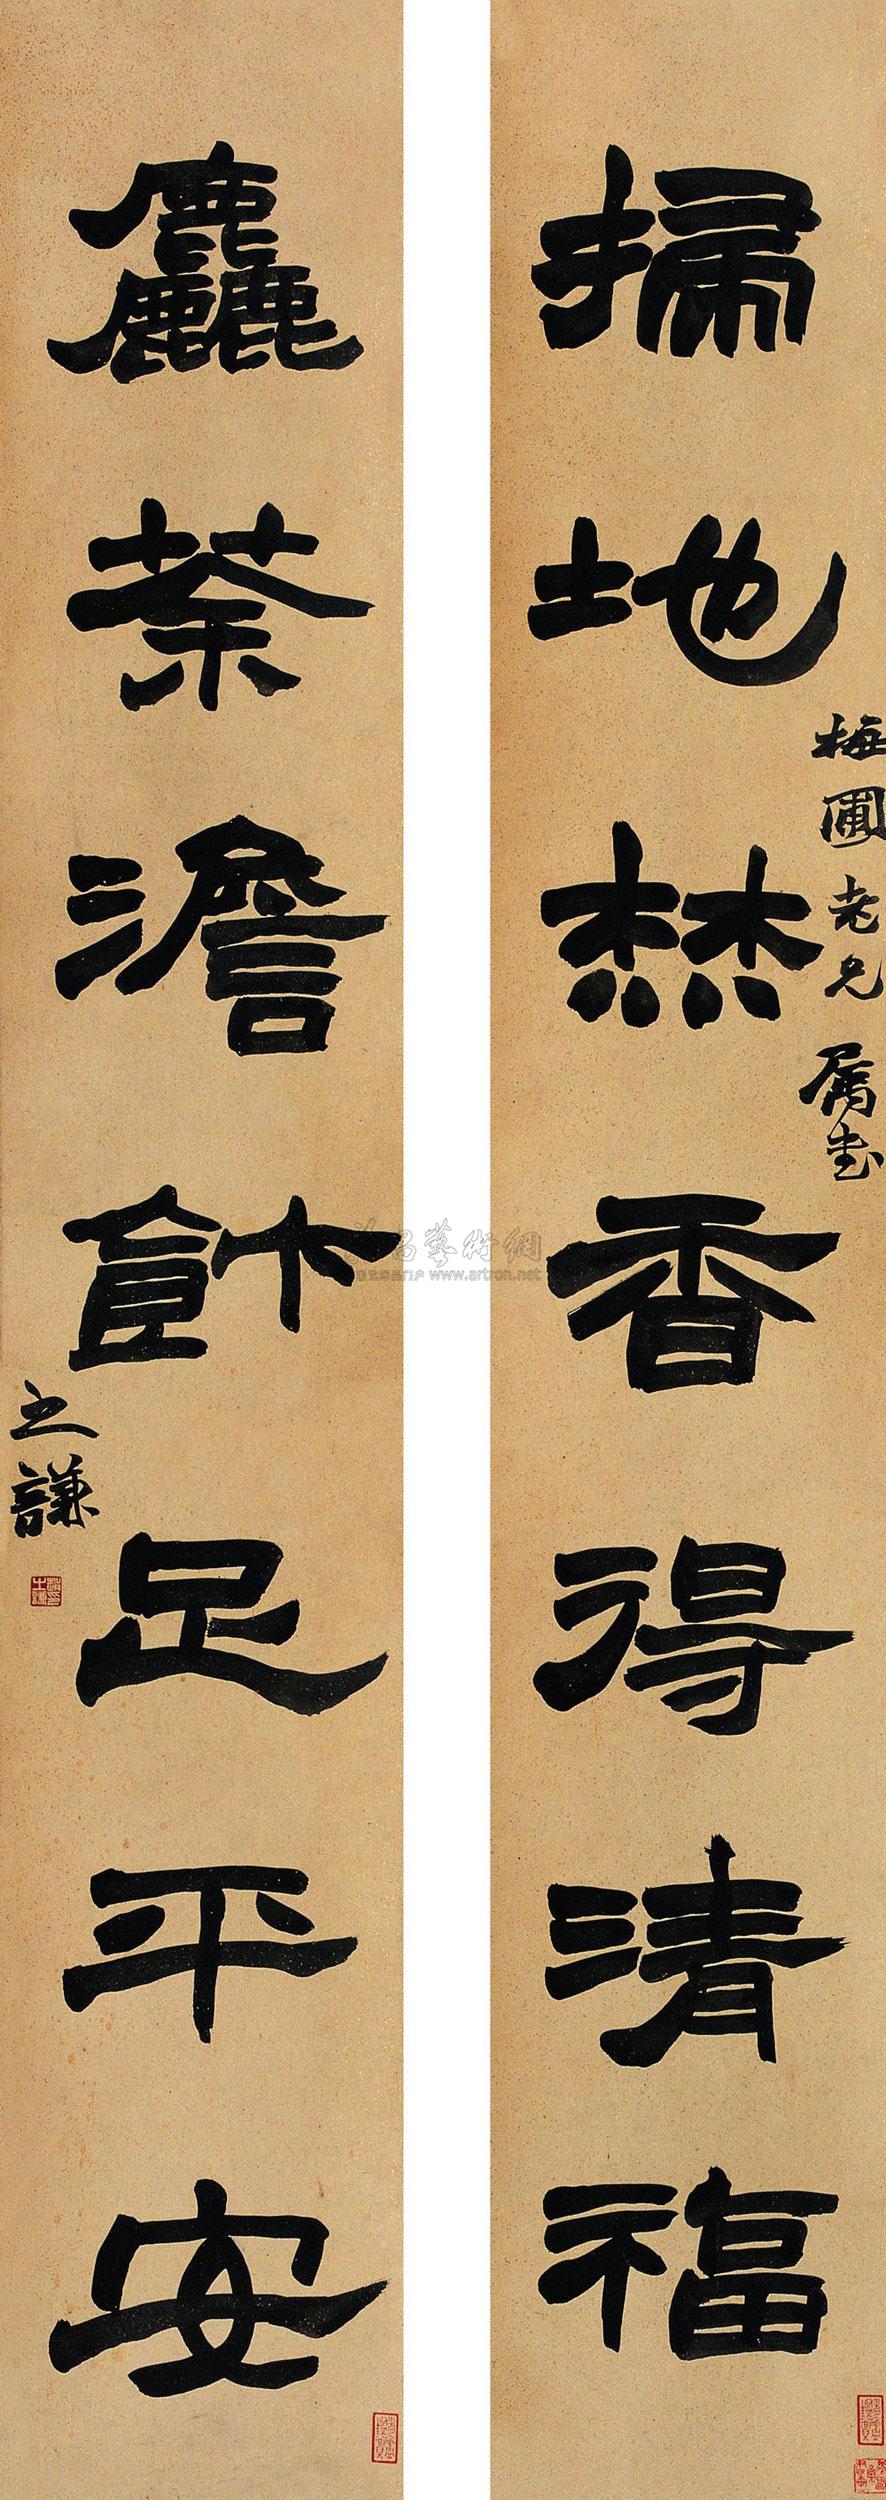 梅圃老兄屬書
掃地焚香得清福
麤茶澹飰足平安
之謙
藝術網
www.artron.net